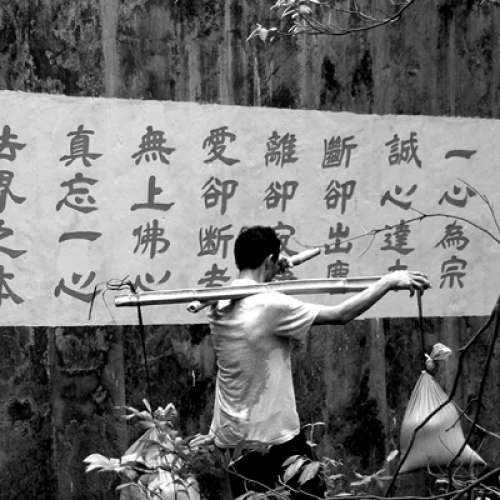 一心為宗
誠心達
斷卻出塵
離卻
愛卻断
無上佛心
真忘一心
界之本